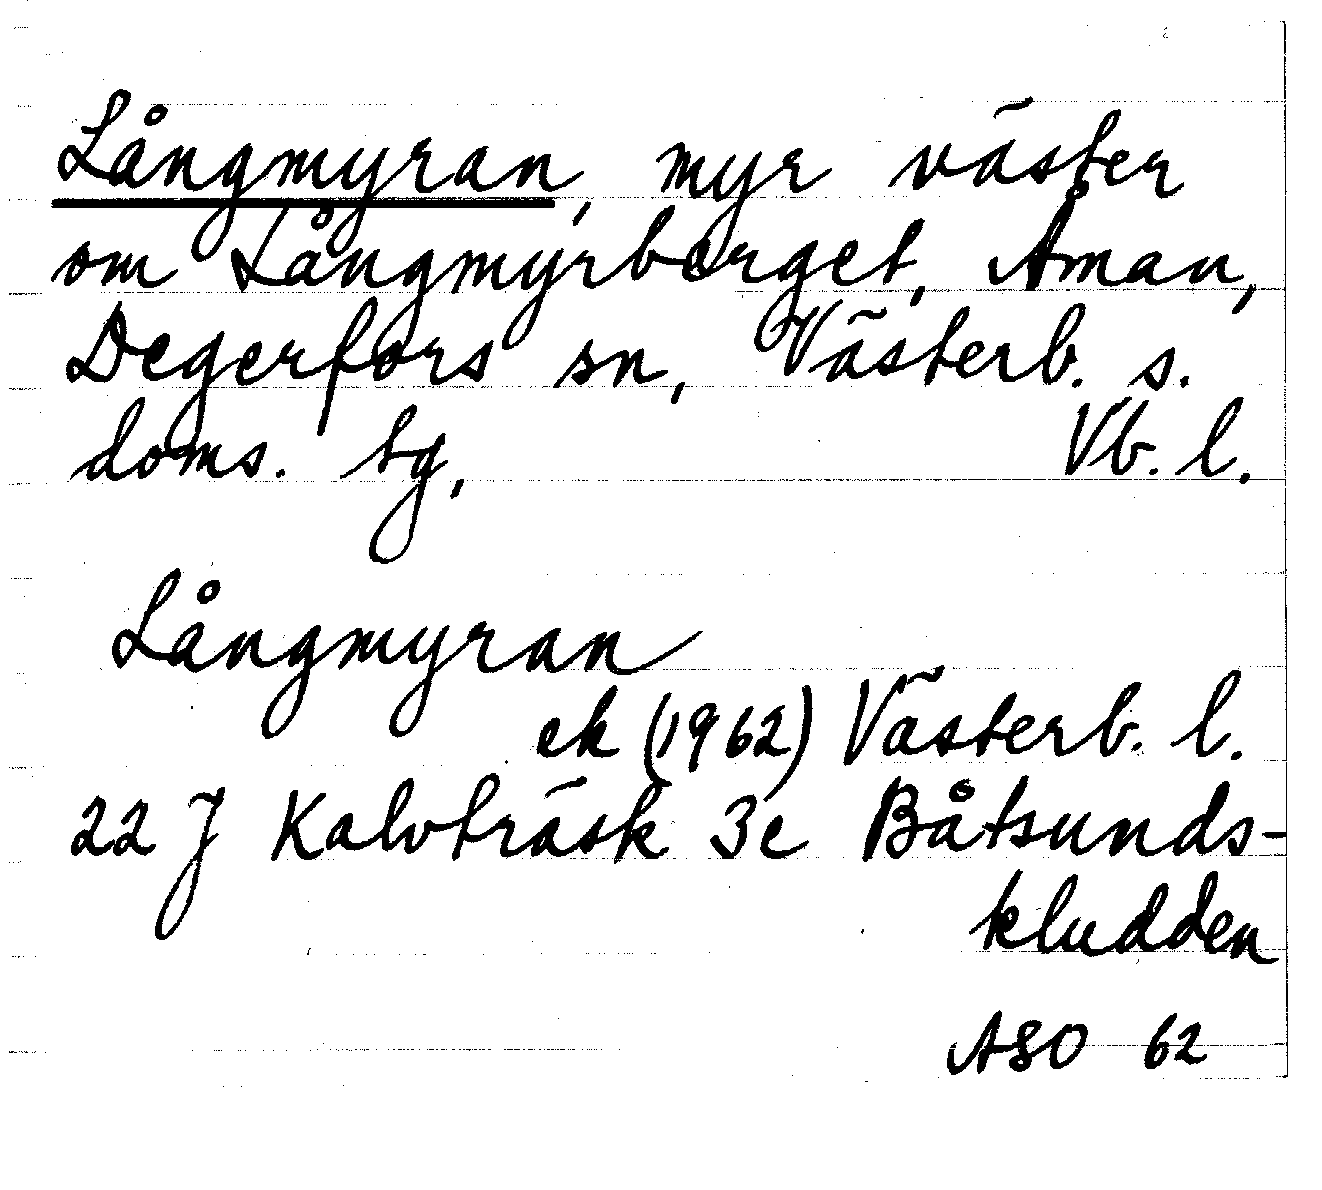 Långmyran, myr väster
om Långmyrberget, Åman,
Degerfors sn, Västerb. s.
doms. tg, Vb. l.
Långmyran
ek (1962) Västerb. l.
22 J Kalvträsk 3e Båtsunds-
kludden
ASO 62